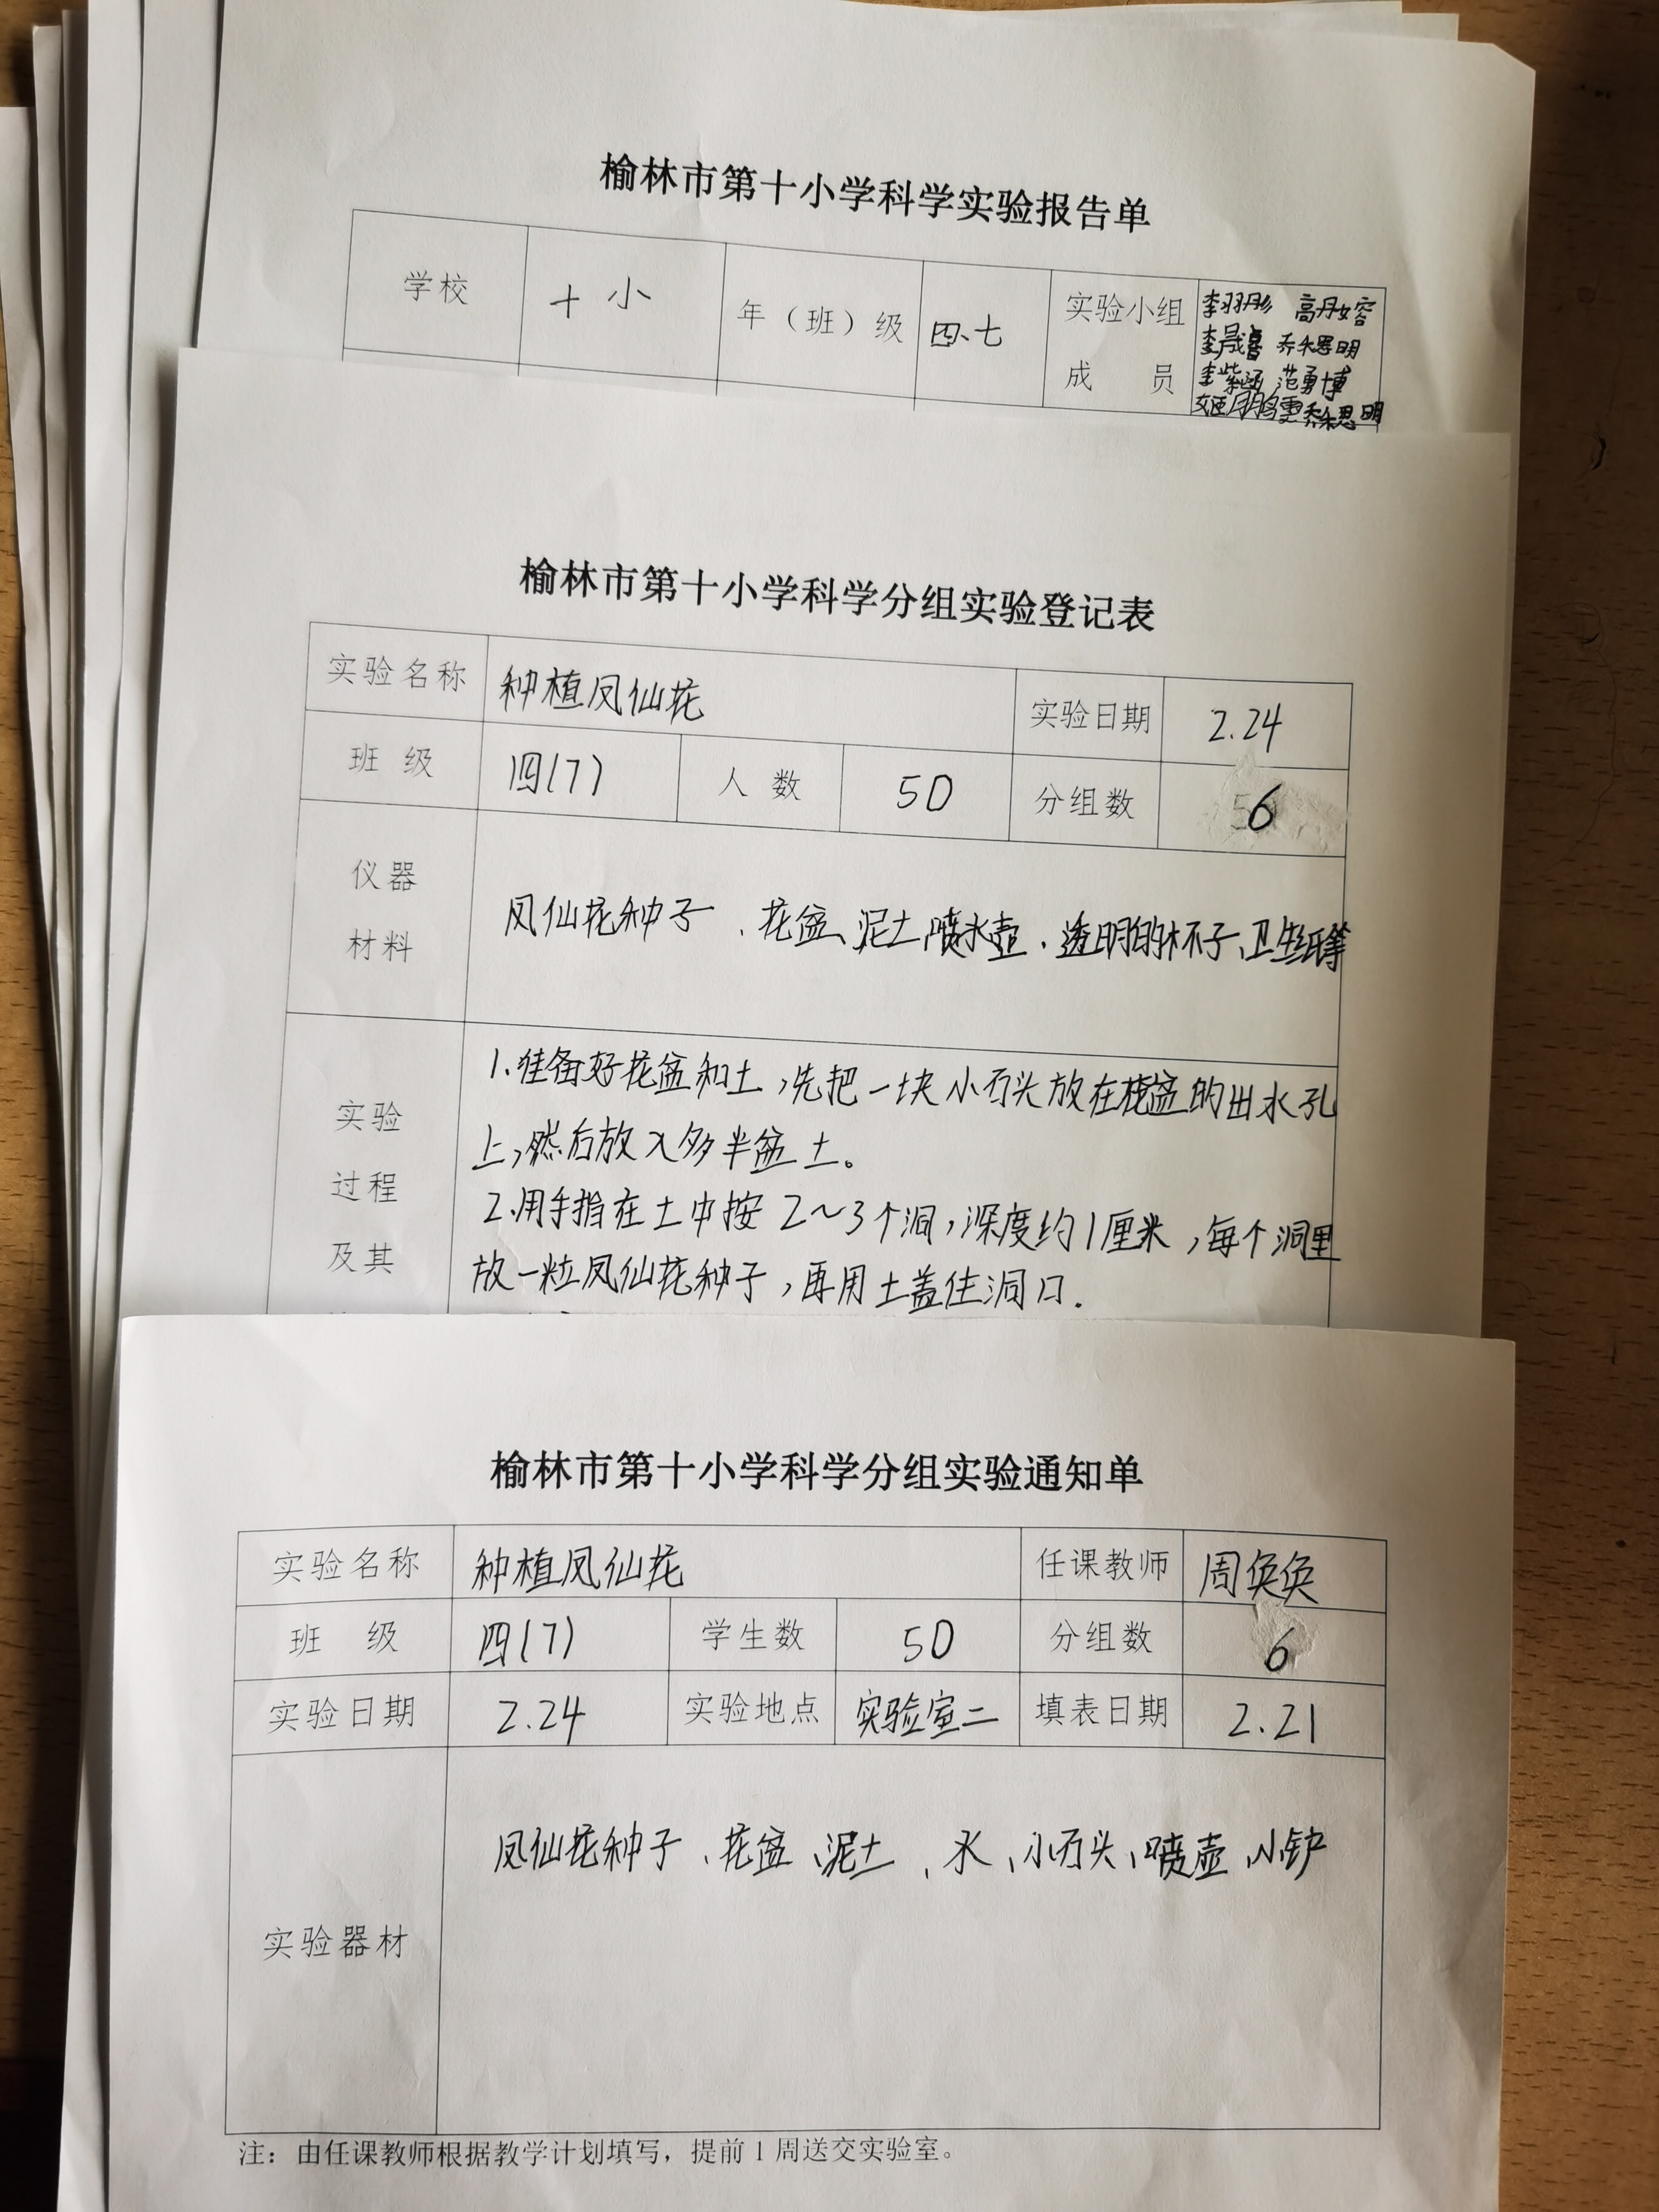 榆林市第十小学科学实验报告单
学校 十小 年（班）级 四、七 实验小组
成 员
李羽彤 高丹容
乔思明
李紫涵 范勇博
乔思明
榆林市第十小学科学分组实验登记表
实验名称 种植凤仙花 实验日期 2.24
班 级 四(7) 人 数 50 分组数 6
仪器
材料
凤仙花种子、花盆、泥土、喷水壶、透明的杯子、卫生纸等
实验
过程
及其
1.准备好花盆和土,先把一块小石头放在花盆的出水孔
上,然后放入多半盆土。
2.用手指在土中按2~3个洞,深度约1厘米,每个洞里
放一粒凤仙花种子,再用土盖住洞口.
榆林市第十小学科学分组实验通知单
实验名称 种植凤仙花 任课教师 周奂奂
班 级 四(7) 学生数 50 分组数 6
实验日期 2.24 实验地点 实验室二 填表日期 2.21
实验器材
凤仙花种子、花盆、泥土、水、小石头、喷壶、小铲
注：由任课教师根据教学计划填写，提前1周送交实验室。